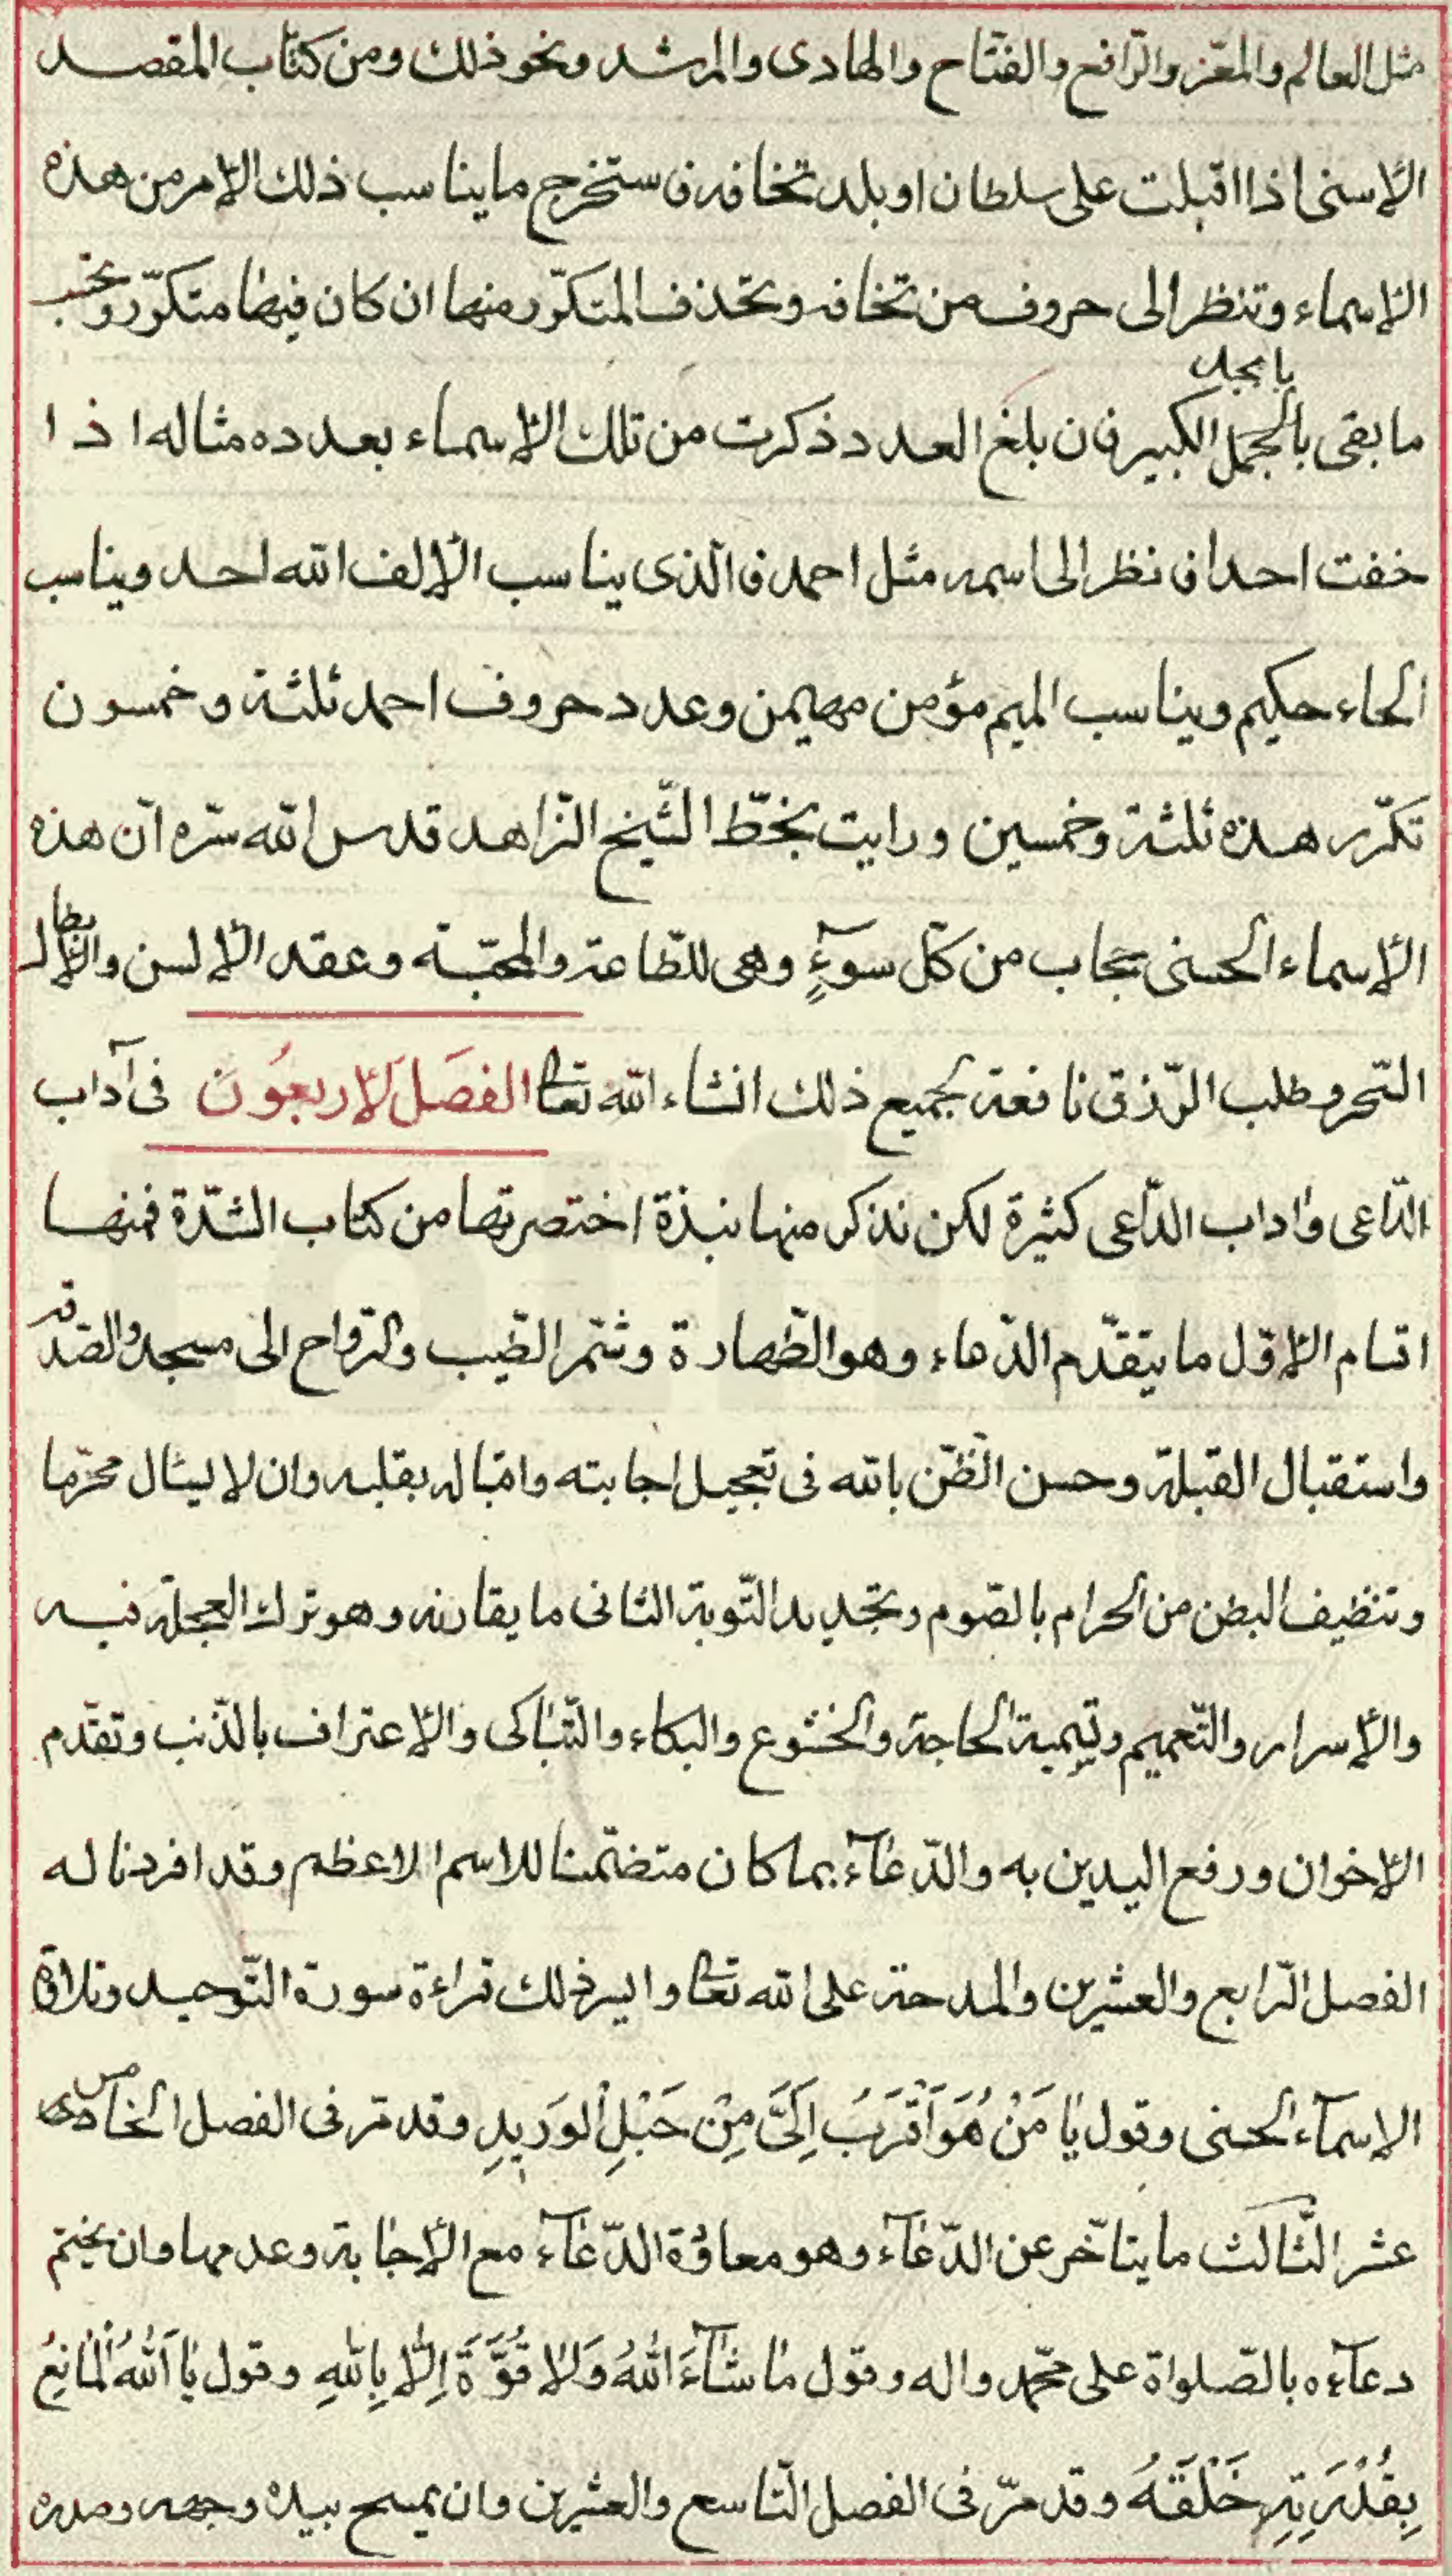 مثل العالم والمعّز والرّافع والفتّاح والهادى والمرشد ونحو ذلك ومن كتاب المقصد
الأسنى اذا اقبلت على سلطان او بلد تخافه فاستخرج ما يناسب ذلك الأمر من هذه
الأسماء وتنظر الى حروف من تخافه وتحذف المتكرّر منها ان كان فيها متكرّر وتحسب
ما بقى بالجمل الكبير فان بلغ العدد ذكرت من تلك الأسماء بعدده مثاله اذا
خفت احدا فانظر الى اسمه مثل احمد فالّذى يناسب الألف الله احد ويناسب
الحاء حكيم ويناسب الميم مؤمن مهيمن وعدد حروف احمد ثلثة وخمسون
تكرّر هذه ثلثة وخمسين ورايت بخطّ الشّيخ الزّاهد قدس الله سرّه انّ هذه
الأسماء الحسنى حجاب من كلّ سوءٍ وهى للطّاعة والمحبّة وعقد الألسن ولأبطال
السّحر وطلب الرّزق نافعة لجميع ذلك انشاء الله تعالى الفصل الأربعون فى آداب
الدّاعى واداب الدّاعى كثيرة لكن نذكر منها نبذة اختصرتها من كتاب الشّدّة فمنها
اقسام الأوّل ما يتقدّم الدّعاء وهو الطّهارة وشمّ الطّيب والرّواح الى مسجد والصّدقة
واستقبال القبلة وحسن الظّنّ بالله فى تعجيل اجابته واقباله بقلبه وان لا يسئال محرّما
وتنظيف البطن من الحرام بالصّوم وتجديد التّوبة الثانى ما يقارنه وهو ترك العجلة فيه
والأسرار والتّعميم وتسمية الحاجة والخشوع والبكاء والتّباكى والأعتراف بالذّنب وتقدّم
الأخوان ورفع اليدين به والدّعآء بما كان متضمّنا للاسم الاعظم وقد افردنا له
الفصل الرّابع والعشرين والمدحة على الله تعالى وايسر ذلك قراءة سورة التّوحيد وتلاوة
الاسمآء الحسنى وقول يا مَنْ هُوَ اَقْرَبُ اِلَىَّ مِنْ حَبْلِ الْوَرِيدِ وقد مّر فى الفصل الخامس
عشر الثّالث ما يتأخّر عن الدّعآء وهو معاودة الدّعآء مع الأجابة وعدمها وان يختم
دعآءه بالصّلواة على محمّد واله وقول ما شآءَ اللهُ وَلا قُوَّةَ اِلّا بِاللهِ وقول يا اَللهُ الْمانِعُ
بِقُدْرَتِهِ خَلْقَهُ وقد مرّ فى الفصل التّاسع والعشرين وان يمسح بيده وجهه وصدره